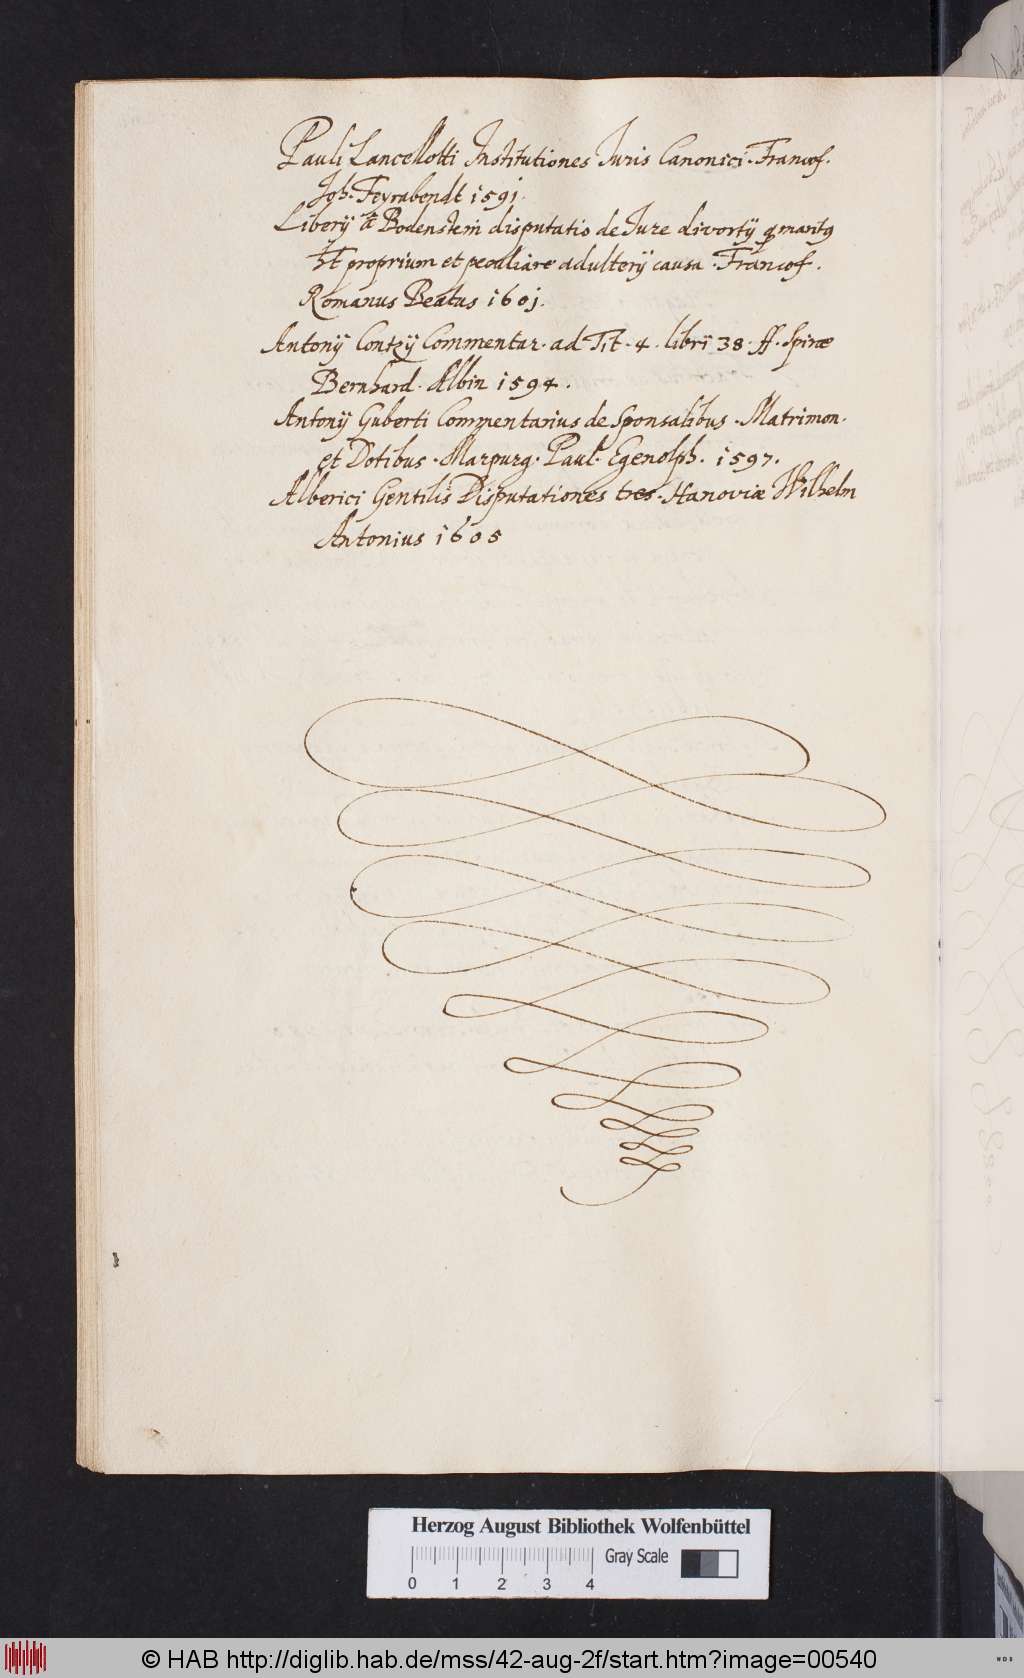 Pauli Lancellotti Institutiones Iuris Canonici. Francof.
Joh. Feyrabendt 1591.
Liberij à Bodenstein disputatio de Iure divortij
proprium et peculiare adulterij causa. Francof.
Romanus Beatus 1601.
Antonij Contij Commentar. ad Tit. 4. libri 38. ff. Spiræ
Bernhard. Albin 1594.
Antonij Guberti Commentarius de Sponsalibus. Matrimon.
et Dotibus. Marpurg. Paul. Egenolph. 1597.
Alberici Gentilis Disputationes tres. Hanoviæ Wilhelm
Antonius 1605
Herzog August Bibliothek Wolfenbüttel
Gray Scale
0 1 2 3 4
© HAB http://diglib.hab.de/mss/42-aug-2f/start.htm?image=00540